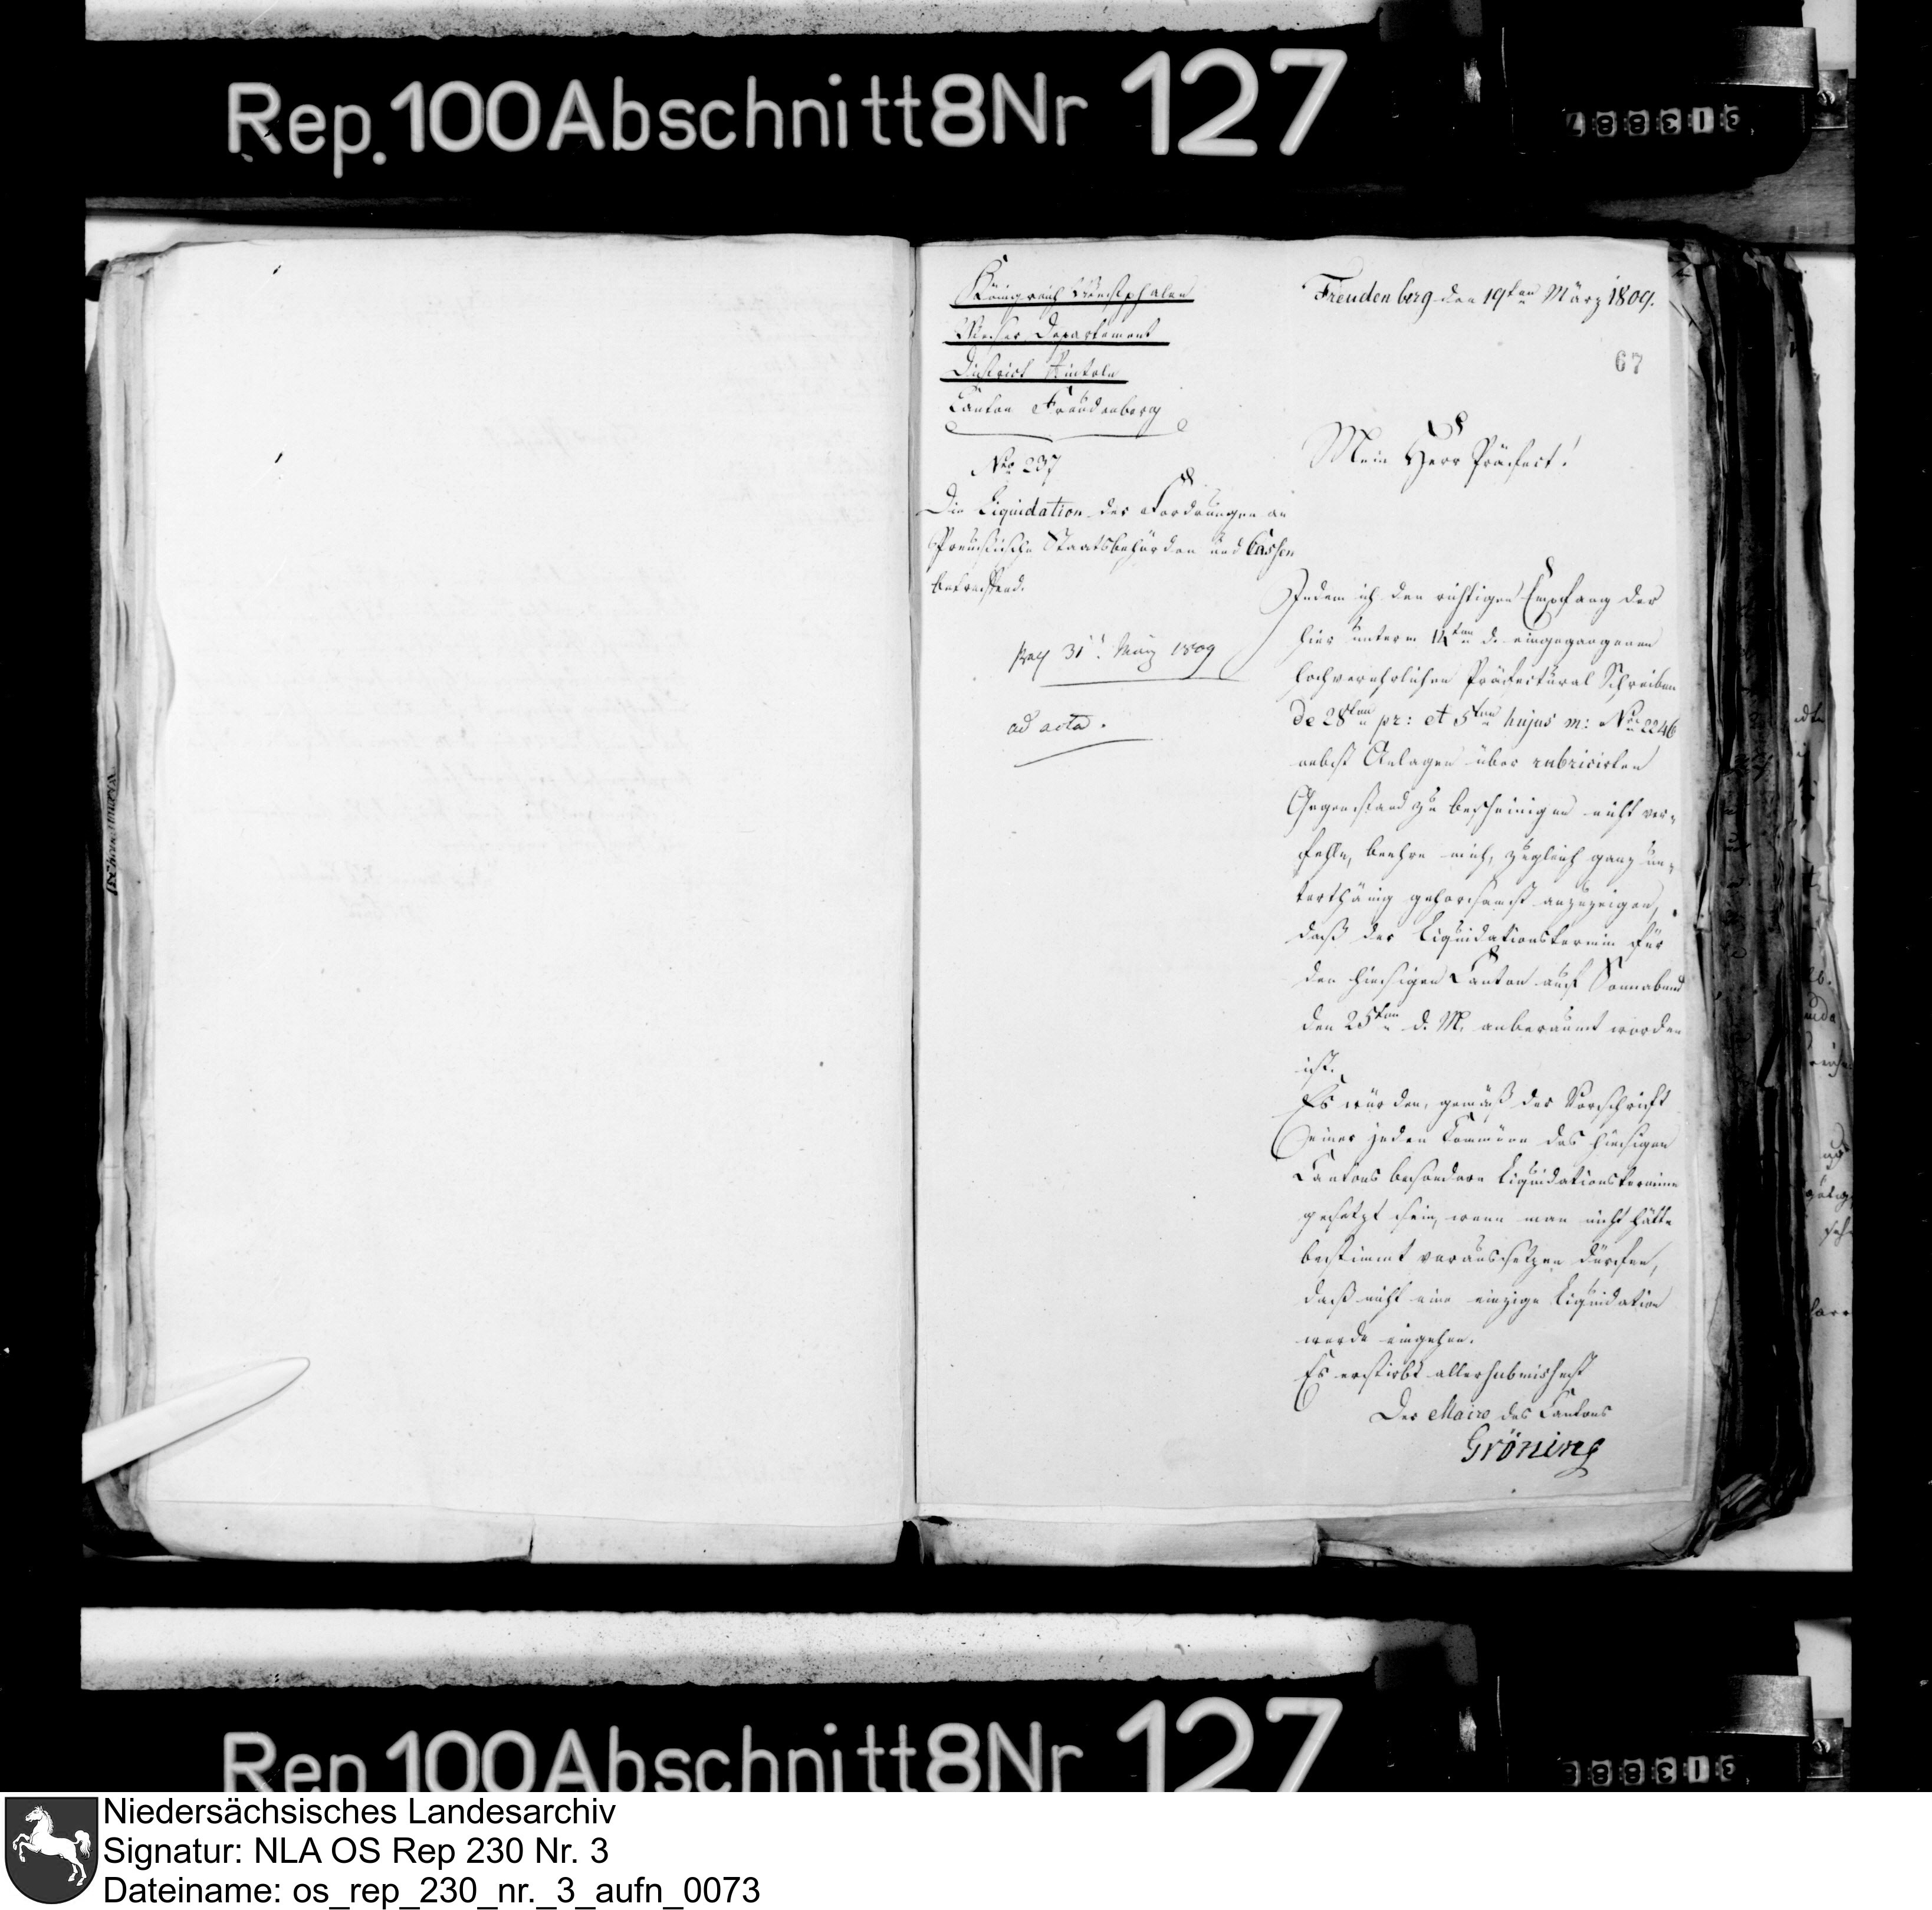 Rep. 100 Abschnitt 8 Nr 127
Königreich Westphalen
Weser Departement
District Rinteln
Canton Freudenberg
Nro 237
Die Liquidation der Fordrungen an
Preussische Staatsbehörden und Cassen
betreffend.
31t. März 1809
ad acta.
Freudenberg den 19ten März 1809.
67
Mein Herr Präfect!
Indem ich den richtigen Empfang der
hier unterm 14ten d. eingegangenen
hochverehrlichen Präfectural Schreiben
de 28ten pr: et 5ten hujus m: Nro 2246
nebst Anlagen über rubricirten
Gegenstand zu bescheinigen nicht ver-
fehle, beehre mich, zugleich ganz un-
terthänig gehorsamst anzuzeigen,
daß der Liquidationstermin für
den hiesigen Canton auf Sonnabend
den 25ten d. M. anberaumt worden
ist.
Es würden, gemäß der Vorschrift
einer jeden Commüne des hiesigen
Cantons besondere Liquidationstermine
gesetzt sein, wenn man nicht hätte
bestimmt voraussetzen dürfen,
daß nicht eine einzige Liquidation
werde eingehen.
Es erstirbt allersubmissest
Der Maire des Cantons
Gröning
Rep 100 Abschnitt 8 Nr 127
Niedersächsisches Landesarchiv
Signatur: NLA OS Rep 230 Nr. 3
Dateiname: os_rep_230_nr._3_aufn_0073